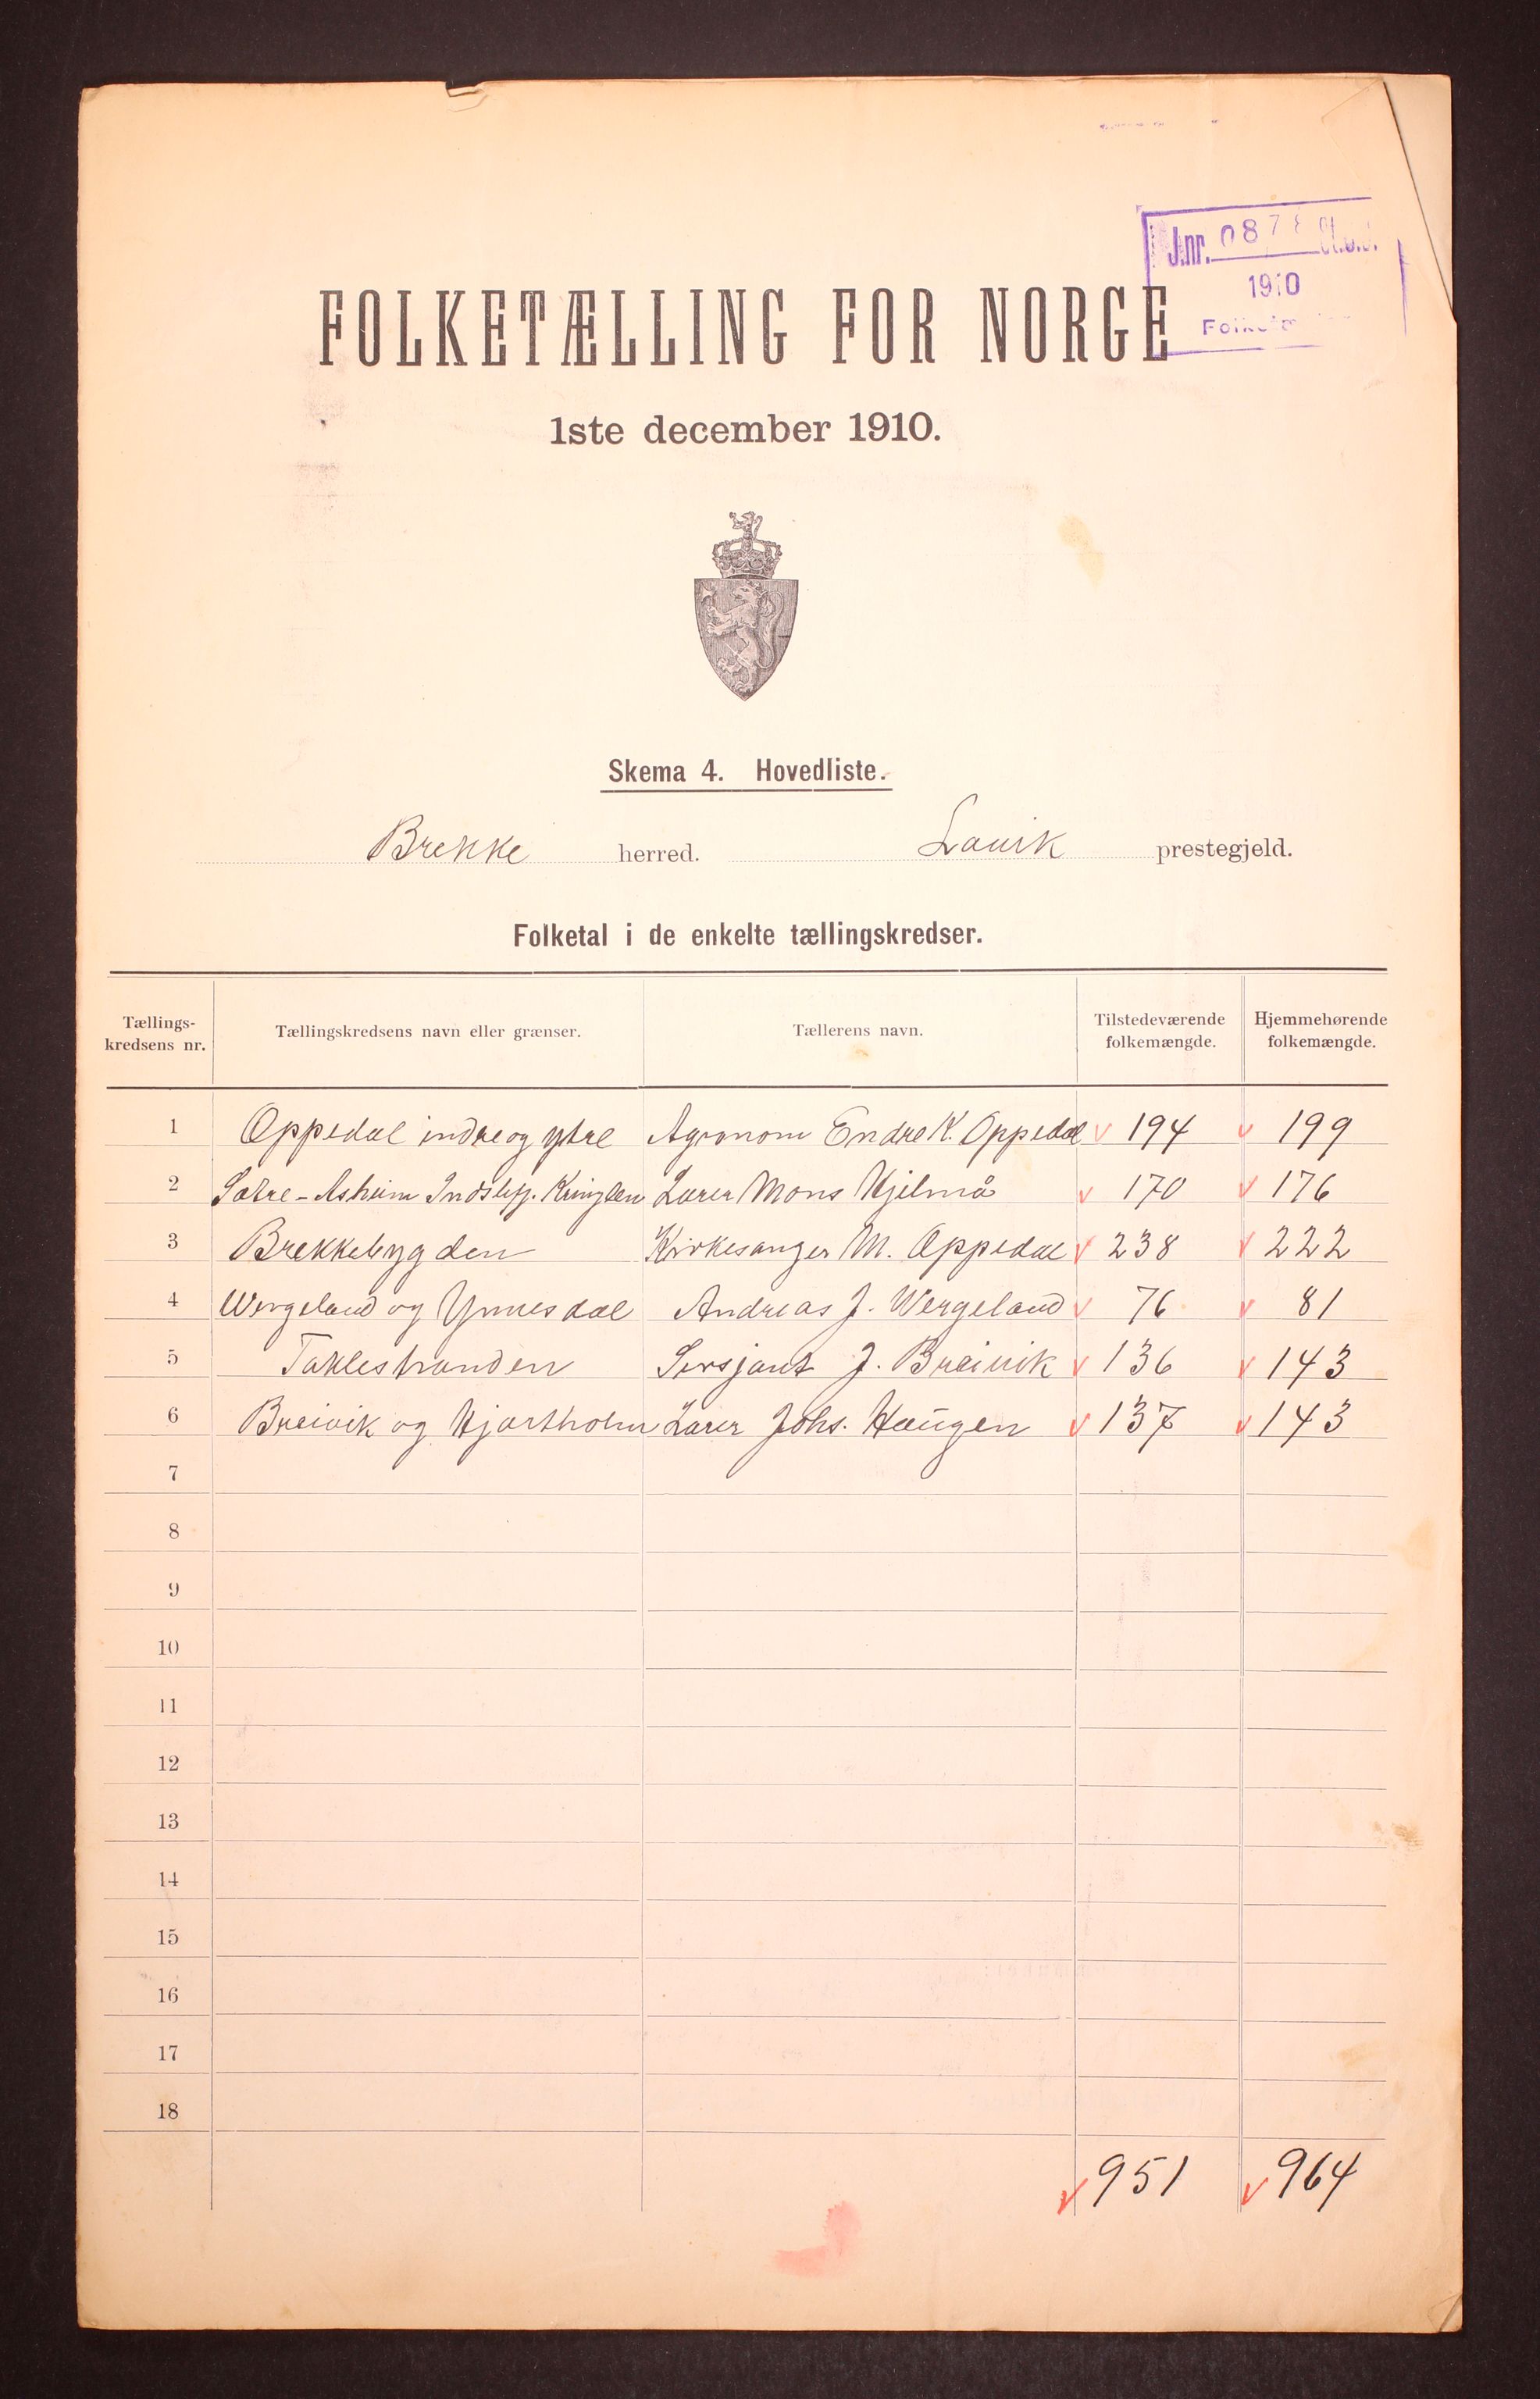 J.nr. 0878
1910
FOLKETÆLLING FOR NORGE
1ste december 1910.
Skema 4. Hovedliste.
Brekke herred. Lavik prestegjeld.
Folketal i de enkelte tællingskredser.
Tællings-kredsens nr. Tællingskredsens navn eller grænser. Tællerens navn. Tilstedeværende folkemængde. Hjemmehørende folkemængde.
1 Oppedal indre og ytre Agronom Endre K. Oppedal v 194 v 199
2 Søtre-Asheim Kringlen Lærer Mons Hjelmå v 170 v 176
3 Brekkebygden Kirkesanger M. Oppedal v 238 v 222
4 Wergeland og Ynnesdal Andreas J. Wergeland v 76 v 81
5 Taklestranden Sersjant J. Breivik v 136 v 143
6 Breivik og Hjartholm Lærer Johs. Haugen v 137 v 143
7
8
9
10
11
12
13
14
15
16
17
18
v 951 v 964